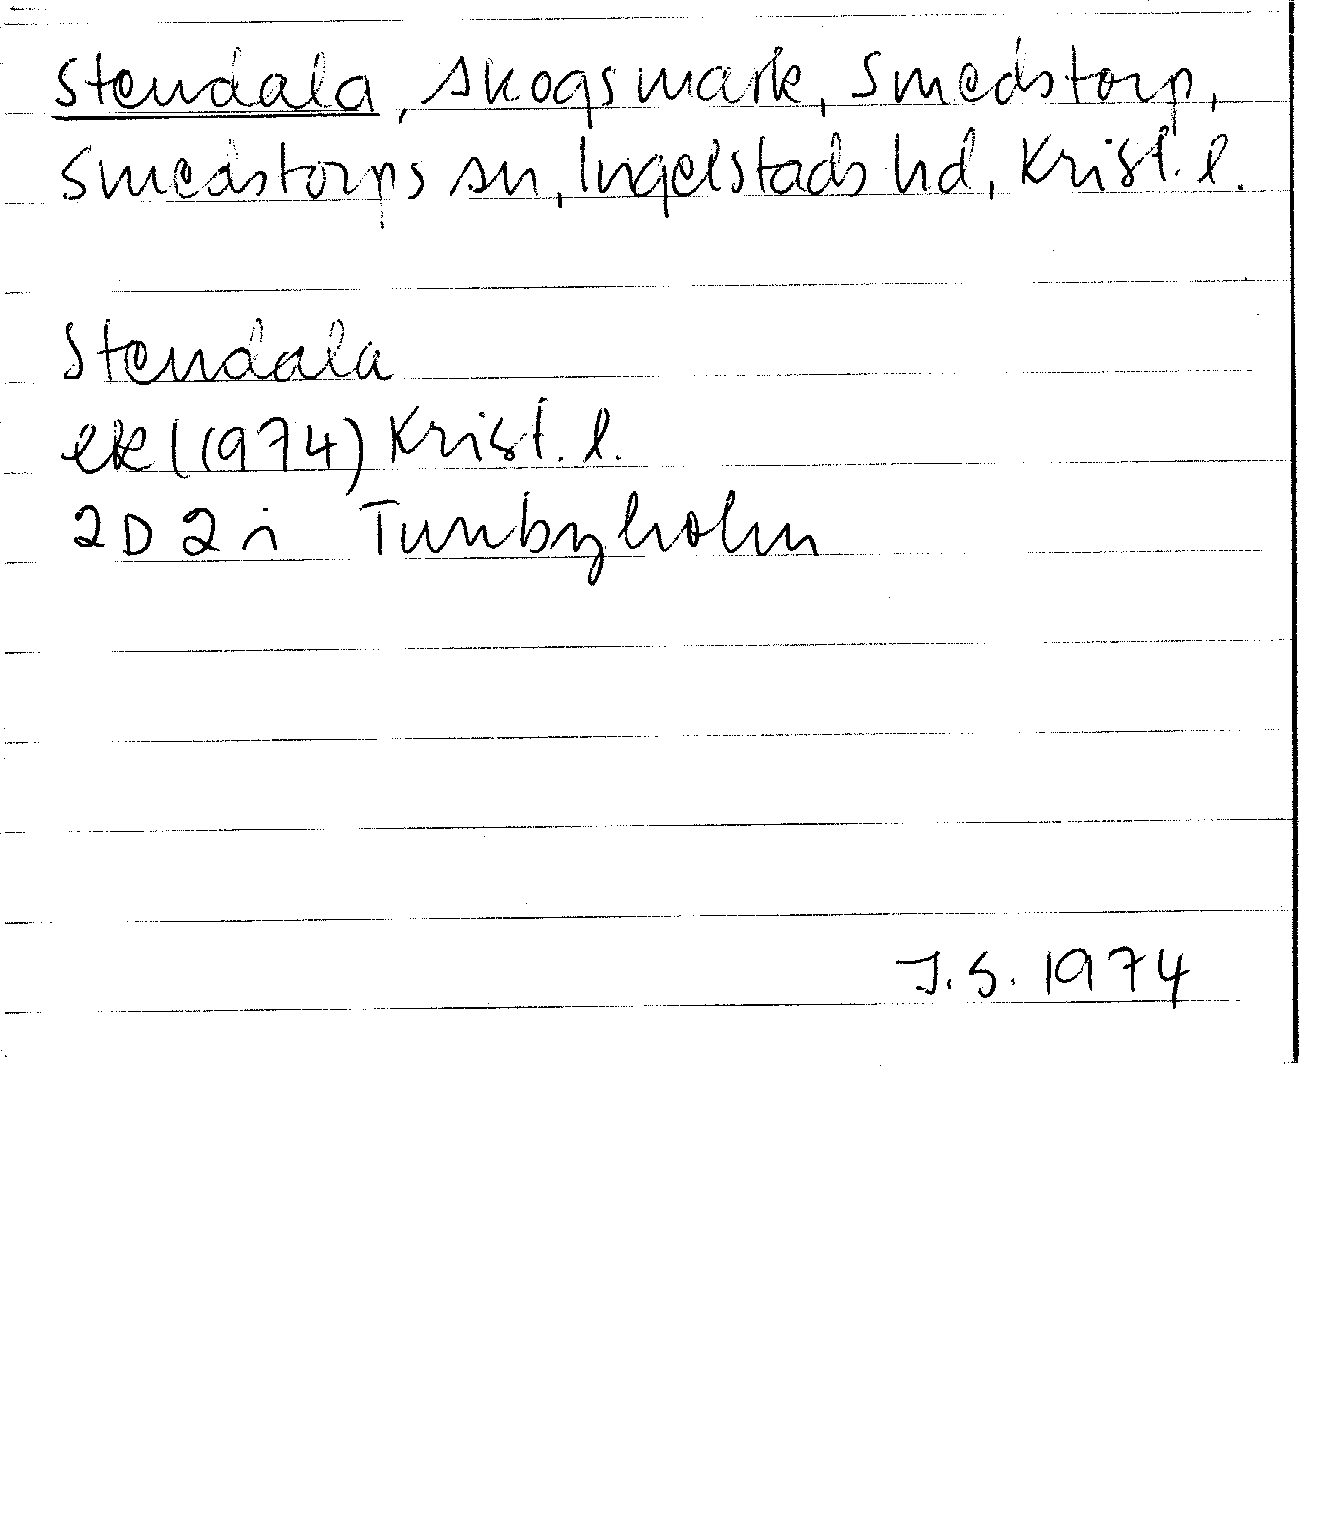 Stendala, skogsmark, Smedstorp,
Smedstorps sn, Ingelstads hd, Krist. l.
Stendala
ek (1974) Krist. l.
2D 2i Tunbyholm
J.S. 1974